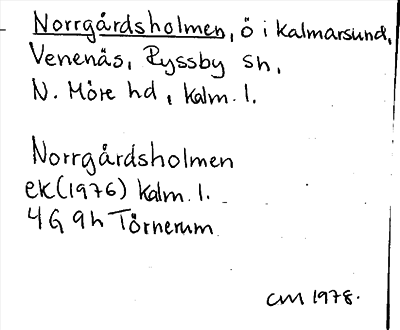 Norrgårdsholmen, ö i Kalmarsund,
Venenäs, Ryssby sn,
N. Möre hd, Kalm. l.
Norrgårdsholmen
ek (1976) Kalm. l.
4G 9h Törnerum
CM 1978.